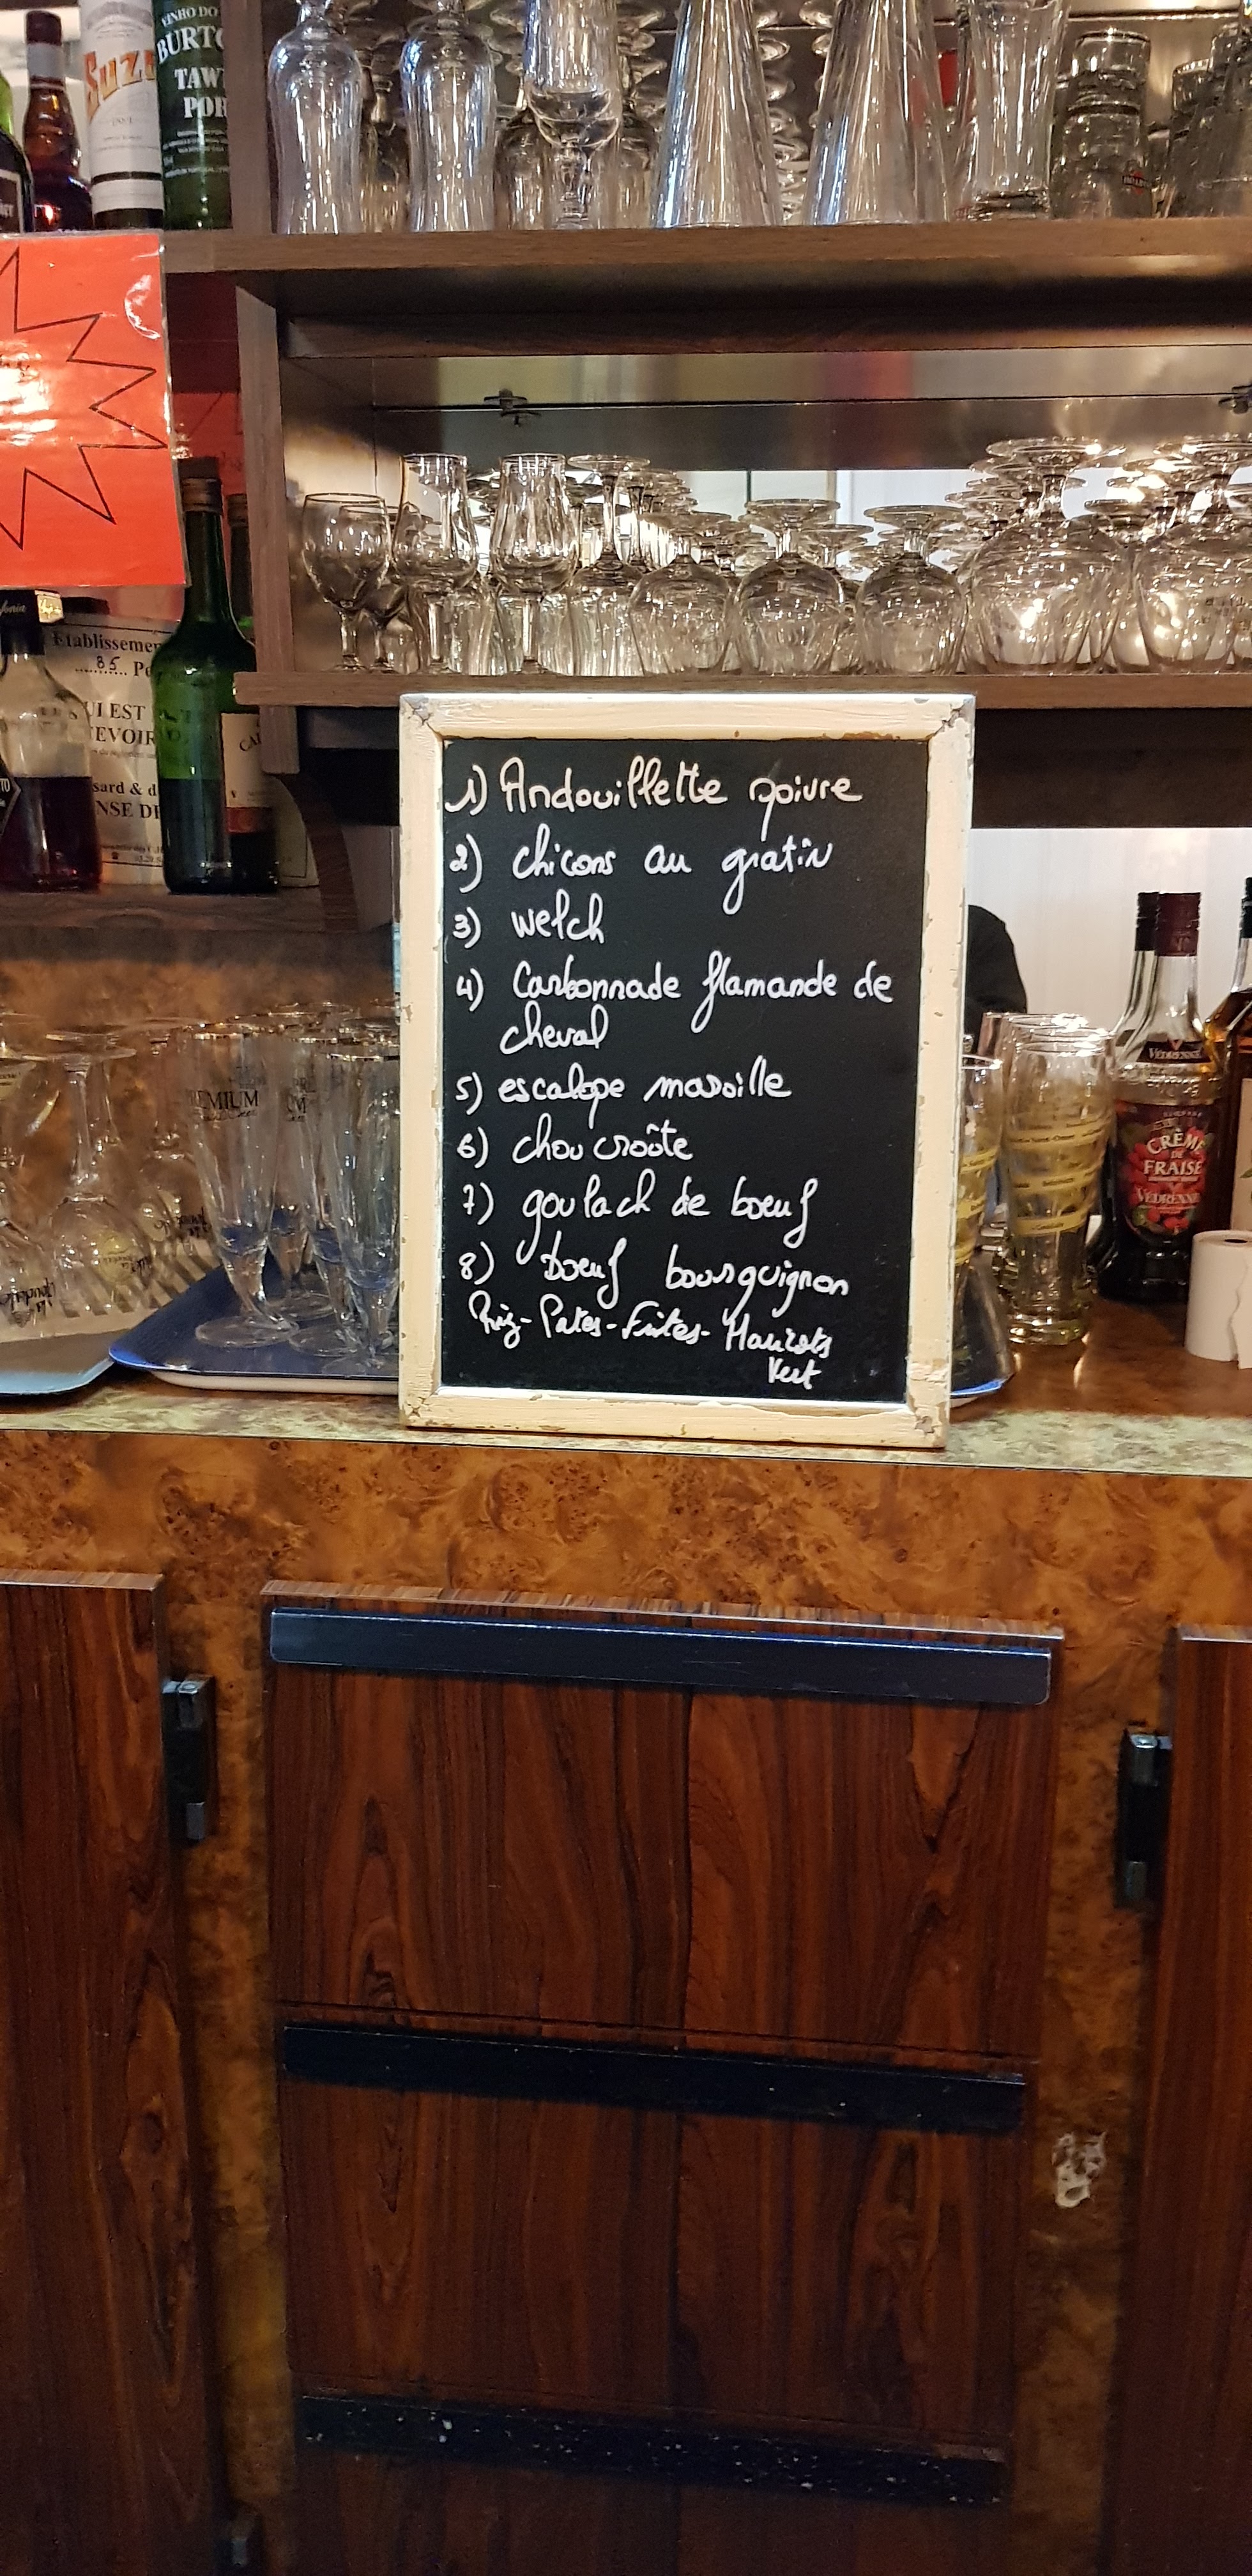 VINHO DO
BURTO
TAW
POR
Suz
Etablissemen
85 Po
UI EST
EVOIR
sard & d
NSE DE
CAL
1) Andouillette poivre
2) chicons au gratin
3) welch
4) Carbonnade flamande de
cheval
5) escalope maroille
6) choucroûte
7) goulach de boeuf
8) boeuf bourguignon
Riz - Pates - Frites - Haricots
Vert
PREMIUM
VEDRENNE
CRÈME
DE
FRAISE
VEDRENNE